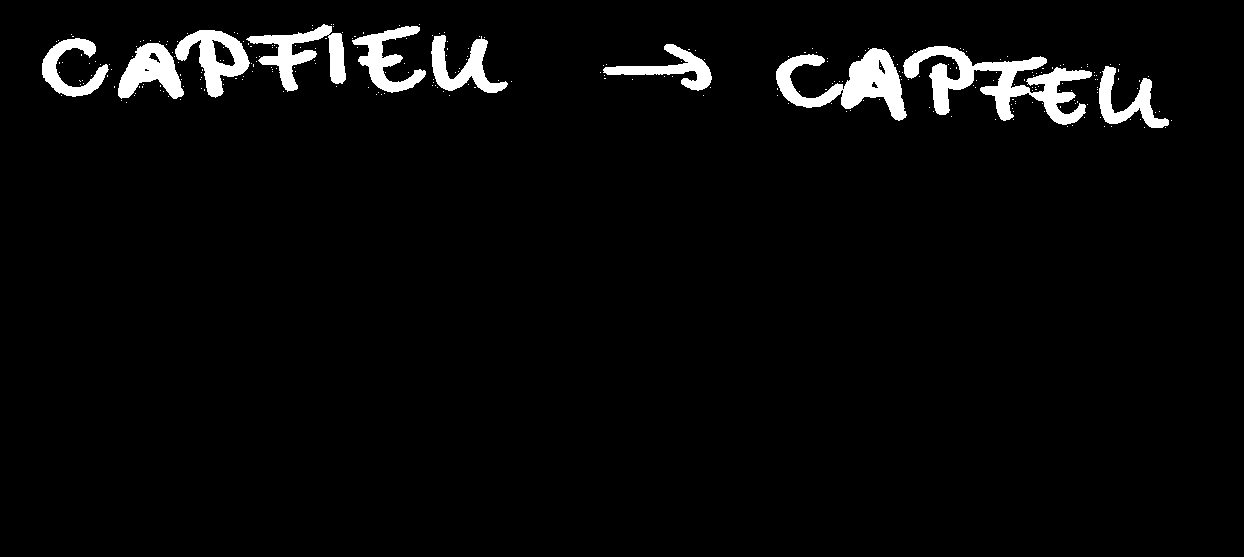 CAPFIEU → CAPFEU